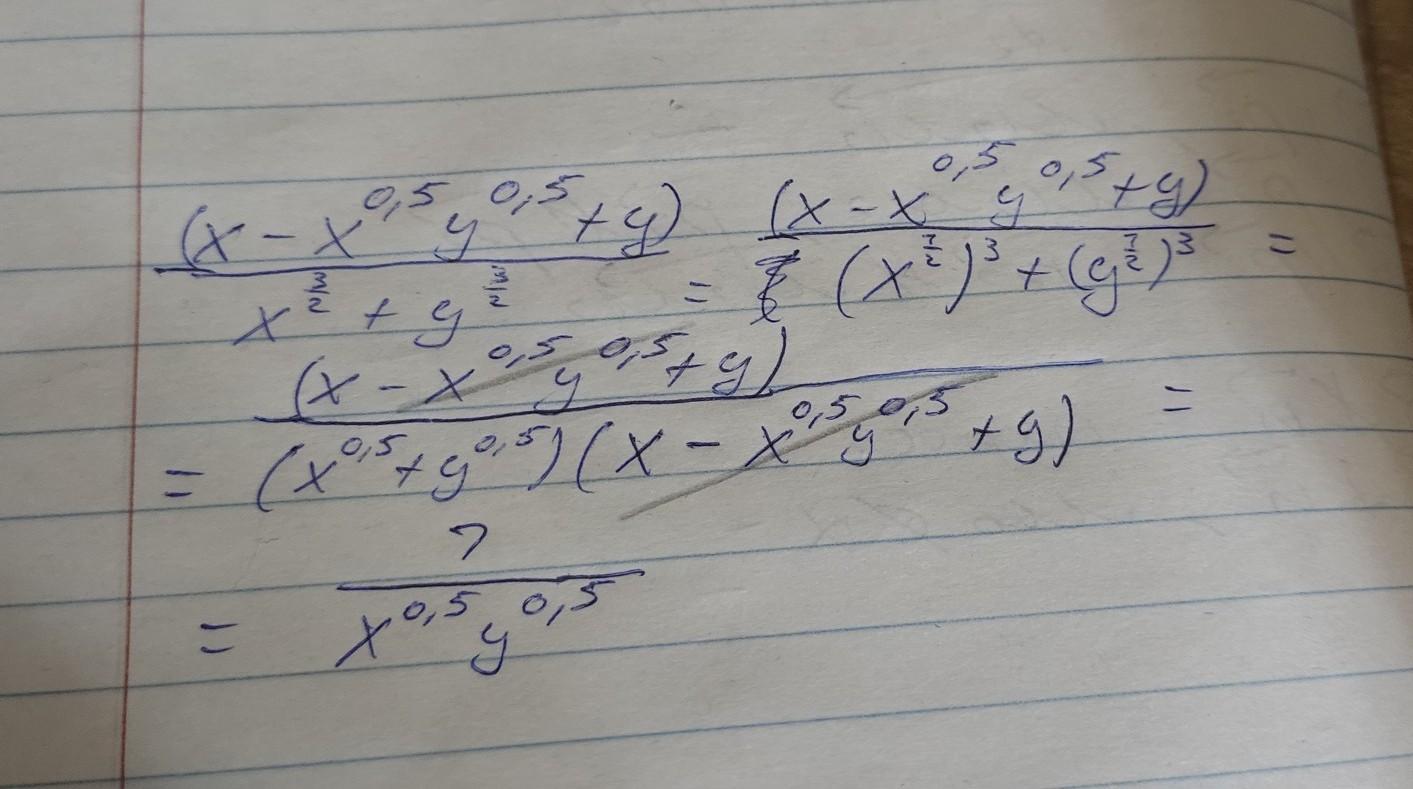 (x - x^0,5 y^0,5 + y) / (x^(3/2) + y^(3/2)) = (x - x^0,5 y^0,5 + y) / ((x^(1/2))^3 + (y^(1/2))^3) =
= (x - x^0,5 y^0,5 + y) / ((x^0,5 + y^0,5)(x - x^0,5 y^0,5 + y)) =
= 1 / (x^0,5 y^0,5)